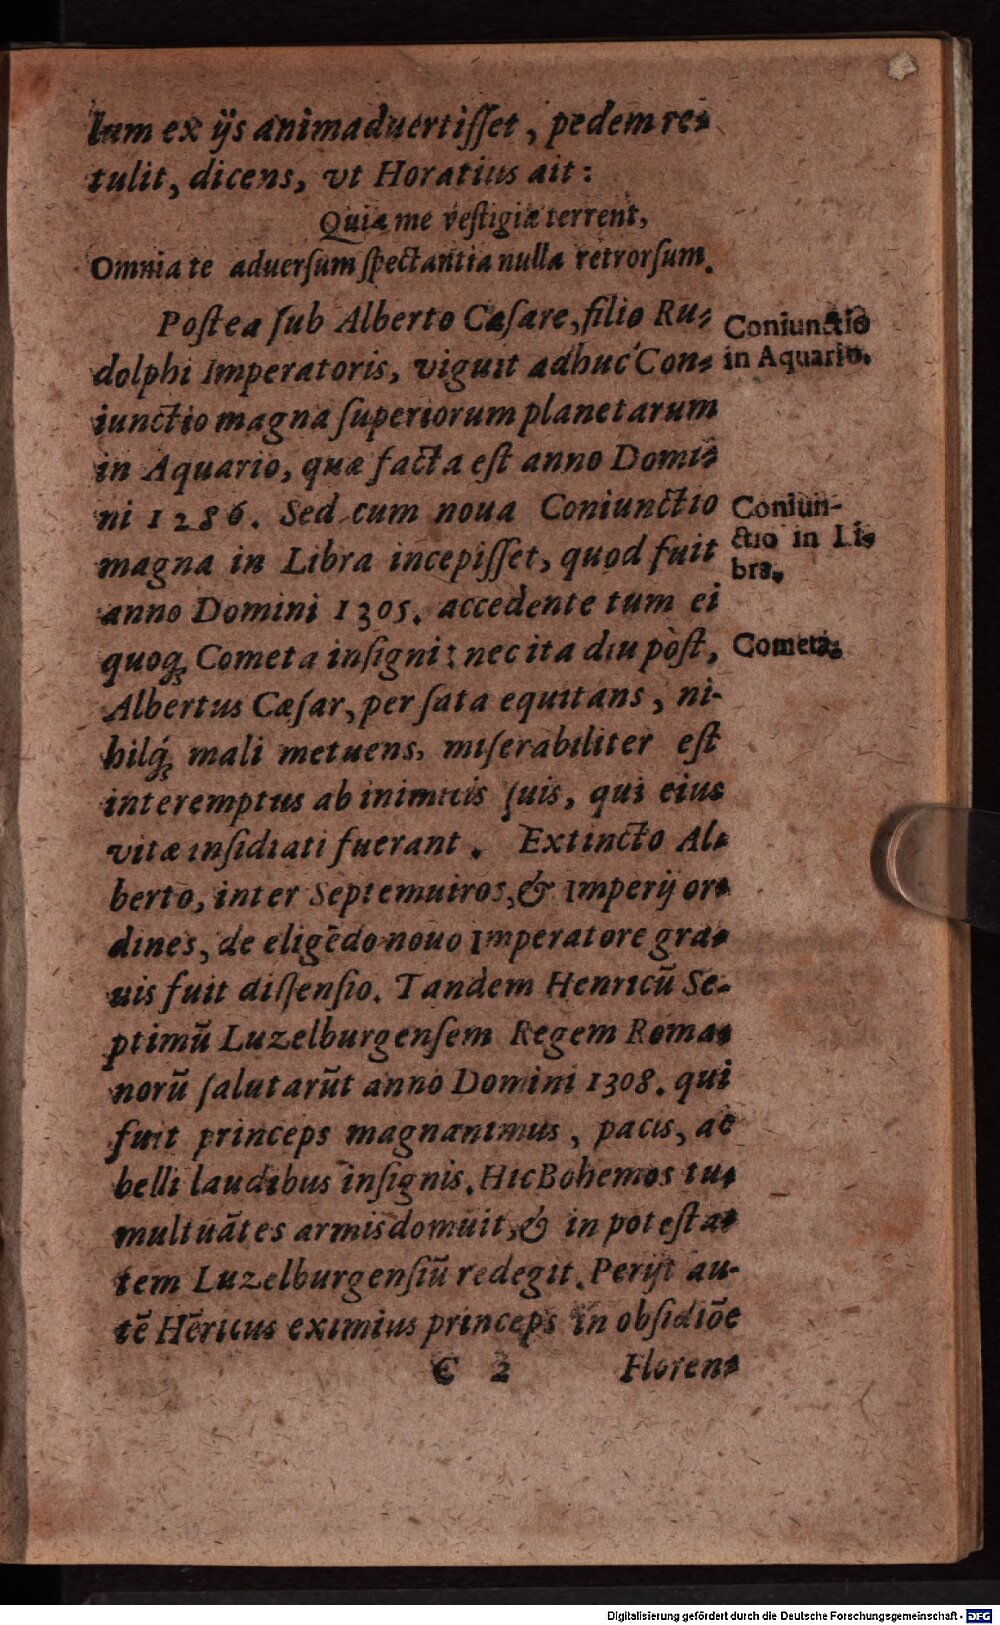 lum ex ijs animaduertiſſet, pedem re-
tulit, dicens, vt Horatius ait:
Quia me veſtigia terrent,
Omnia te aduerſum ſpectantia nulla retrorſum.
Poſtea ſub Alberto Cæſare, filio Ru-
dolphi Imperatoris, viguit adhuc Con-
iunctio magna ſuperiorum planetarum
in Aquario, quæ facta eſt anno Domi-
ni 1286. Sed cum noua Coniunctio
magna in Libra incepiſſet, quod fuit
anno Domini 1305. accedente tum ei
quoq; Cometa inſigni: nec ita diu pòſt,
Albertus Cæſar, per ſata equitans, ni-
hilq́; mali metuens, miſerabiliter eſt
interemptus ab inimicis ſuis, qui eius
vitæ inſidiati fuerant. Extincto Al-
berto, inter Septemuiros, & Imperij or-
dines, de eligēdo nouo Imperatore gra-
uis fuit diſſenſio. Tandem Henricū Se-
ptimū Luzelburgenſem Regem Roma-
norū ſalutarūt anno Domini 1308. qui
fuit princeps magnanimus, pacis, ac
belli laudibus inſignis. Hic Bohemos tu-
multuātes armis domuit, & in poteſta-
tem Luzelburgenſiū redegit. Perijt au-
tē Hēricus eximius princeps in obſidiōe
C 2 Floren-
Coniunctio
in Aquario.
Coniun-
ctio in Li-
bra.
Cometa.
Digitalisierung gefördert durch die Deutsche Forschungsgemeinschaft - DFG